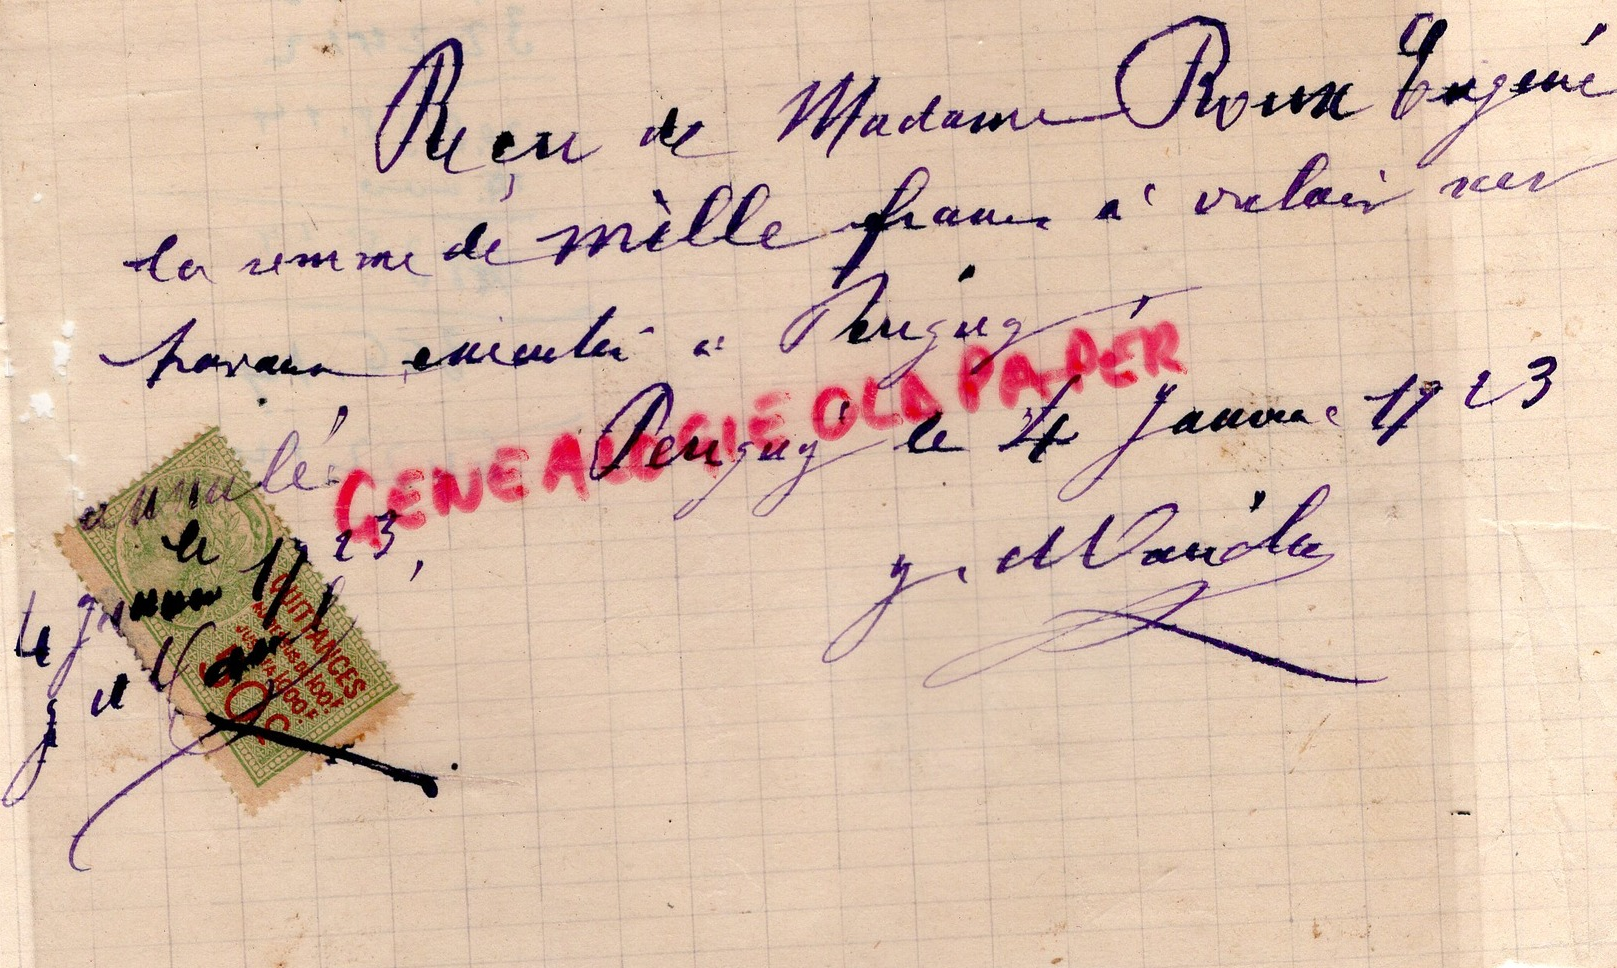 Reçu de Madame Roux Eugéne
la somme de mille francs à valoir sur
travaux executés à Perigny
Perigny le 4 Janvier 1923
GENEALOGIE OLD PAPER
annulé
le
4 Janvier 1923
QUITTANCES
50c